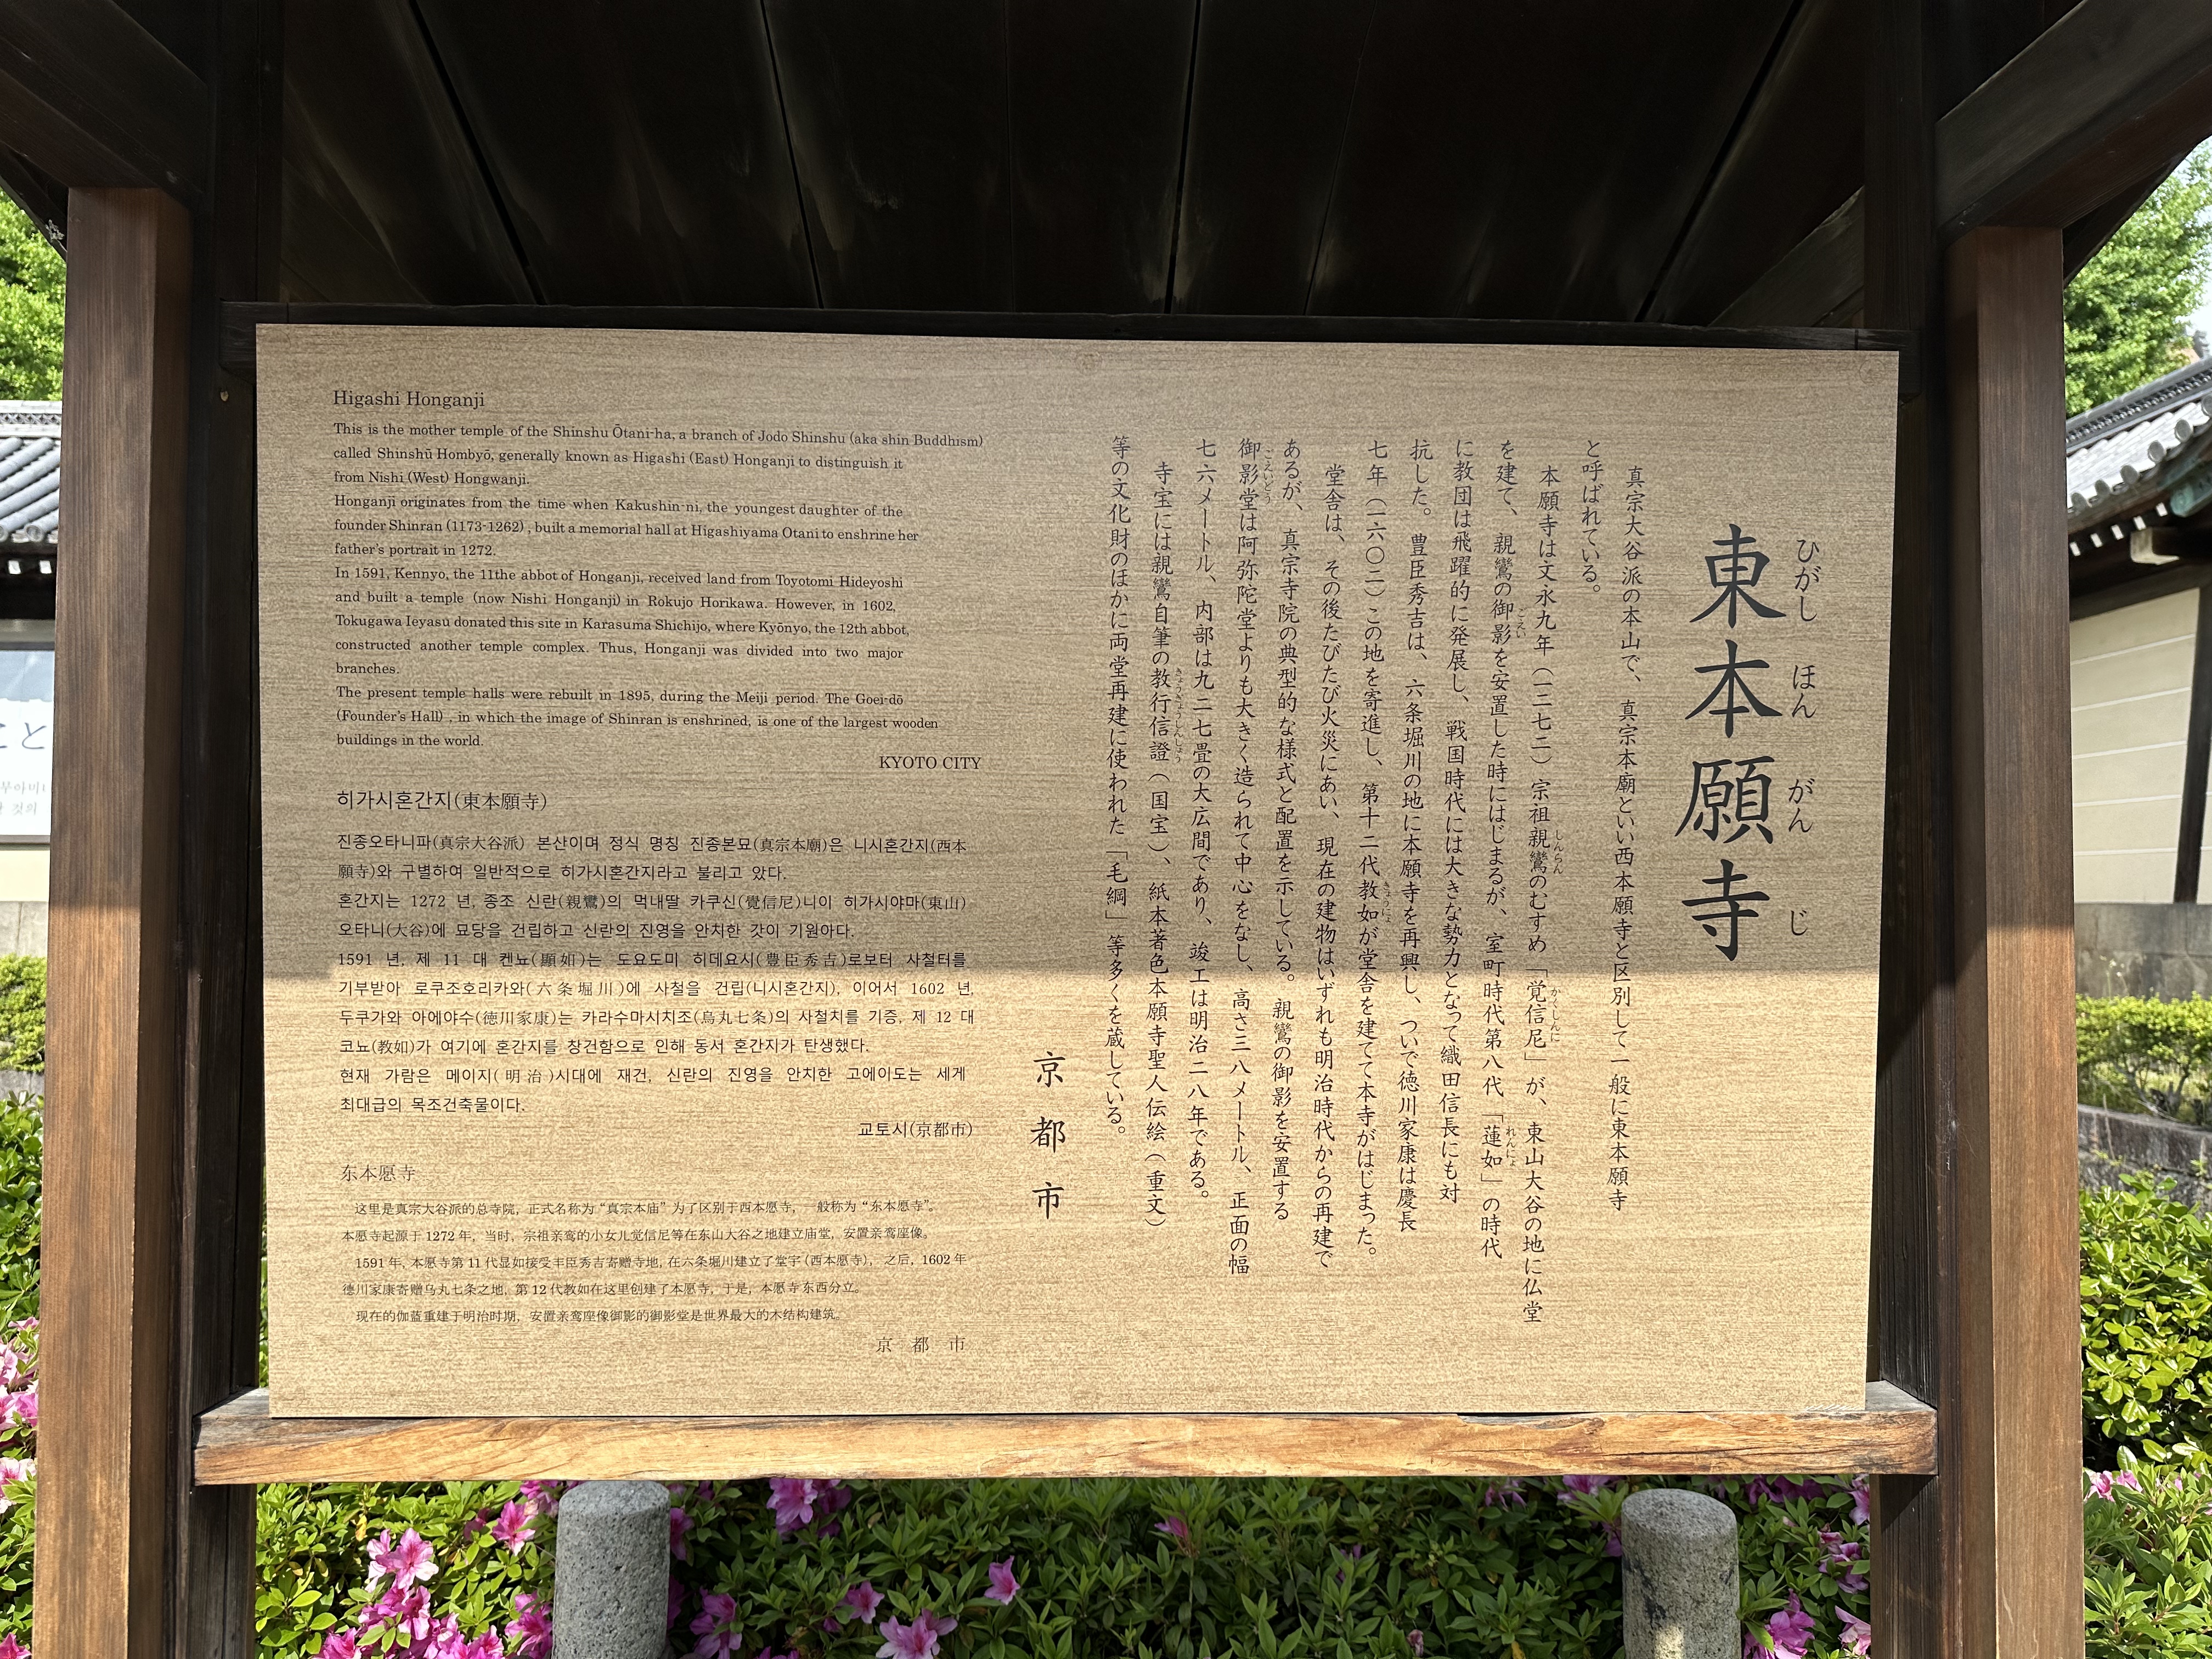 東本願寺
ひがし ほん がん じ
真宗大谷派の本山で、真宗本廟といい西本願寺と区別して一般に東本願寺
と呼ばれている。
本願寺は文永九年（一二七二）宗祖親鸞のむすめ「覚信尼」が、東山大谷の地に仏堂
を建て、親鸞の御影を安置した時にはじまるが、室町時代第八代「蓮如」の時代
に教団は飛躍的に発展し、戦国時代には大きな勢力となって織田信長にも対
抗した。豊臣秀吉は、六条堀川の地に本願寺を再興し、ついで徳川家康は慶長
七年（一六〇二）この地を寄進し、第十二代教如が堂舎を建てて本寺がはじまった。
堂舎は、その後たびたび火災にあい、現在の建物はいずれも明治時代からの再建で
あるが、真宗寺院の典型的な様式と配置を示している。親鸞の御影を安置する
御影堂は阿弥陀堂よりも大きく造られて中心をなし、高さ三八メートル、正面の幅
七六メートル、内部は九二七畳の大広間であり、竣工は明治二八年である。
寺宝には親鸞自筆の教行信證（国宝）、紙本著色本願寺聖人伝絵（重文）
等の文化財のほかに両堂再建に使われた「毛綱」等多くを蔵している。
京都市
Higashi Honganji
This is the mother temple of the Shinshu Ōtani-ha, a branch of Jodo Shinshu (aka shin Buddhism)
called Shinshū Hombyō, generally known as Higashi (East) Honganji to distinguish it
from Nishi (West) Hongwanji.
Honganji originates from the time when Kakushin-ni, the youngest daughter of the
founder Shinran (1173-1262) , built a memorial hall at Higashiyama Otani to enshrine her
father's portrait in 1272.
In 1591, Kennyo, the 11the abbot of Honganji, received land from Toyotomi Hideyoshi
and built a temple (now Nishi Honganji) in Rokujo Horikawa. However, in 1602,
Tokugawa Ieyasu donated this site in Karasuma Shichijo, where Kyōnyo, the 12th abbot,
constructed another temple complex. Thus, Honganji was divided into two major
branches.
The present temple halls were rebuilt in 1895, during the Meiji period. The Goei-dō
(Founder's Hall) , in which the image of Shinran is enshrined, is one of the largest wooden
buildings in the world.
KYOTO CITY
히가시혼간지(東本願寺)
진종오타니파(真宗大谷派) 본산이며 정식 명칭 진종본묘(真宗本廟)은 니시혼간지(西本
願寺)와 구별하여 일반적으로 히가시혼간지라고 불리고 았다.
혼간지는 1272 년, 종조 신란(親鸞)의 먹내딸 카쿠신(覺信尼)니이 히가시야마(東山)
오타니(大谷)에 묘당을 건립하고 신란의 진영을 안치한 갓이 기원아다.
1591 년, 제 11 대 켄뇨(顯如)는 도요도미 히데요시(豊臣秀吉)로보터 사철터를
기부받아 로쿠조호리카와(六条堀川)에 사철을 건립(니시혼간지), 이어서 1602 년,
두쿠가와 아에야수(徳川家康)는 카라수마시치조(烏丸七条)의 사철치를 기증, 제 12 대
쿄뇨(教如)가 여기에 혼간지를 창건함으로 인해 동서 혼간지가 탄생했다.
현재 가람은 메이지(明治)시대에 재건, 신란의 진영을 안치한 고에이도는 세게
최대급의 목조건축물이다.
교토시(京都市)
东本愿寺
这里是真宗大谷派的总寺院，正式名称为“真宗本庙”为了区别于西本愿寺，一般称为“东本愿寺”。
本愿寺起源于 1272 年，当时，宗祖亲鸾的小女儿觉信尼等在东山大谷之地建立庙堂，安置亲鸾座像。
1591 年, 本愿寺第 11 代显如接受丰臣秀吉寄赠寺地, 在六条堀川建立了堂宇 (西本愿寺)， 之后，1602 年
德川家康寄赠乌丸七条之地，第 12 代教如在这里创建了本愿寺，于是，本愿寺东西分立。
现在的伽蓝重建于明治时期，安置亲鸾座像御影的御影堂是世界最大的木结构建筑。
京都市